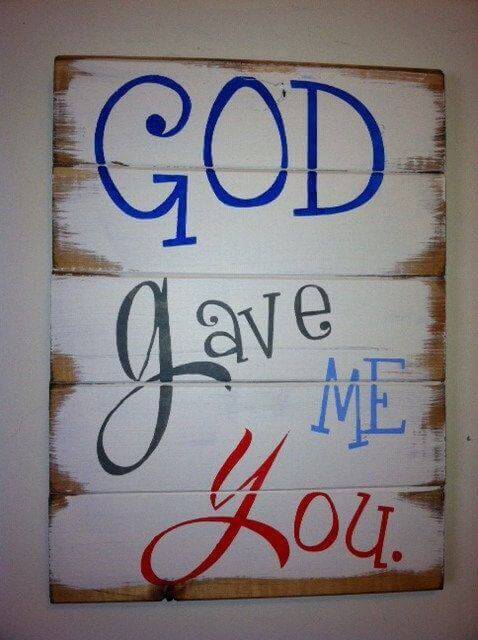 GOD
gave
ME
You.